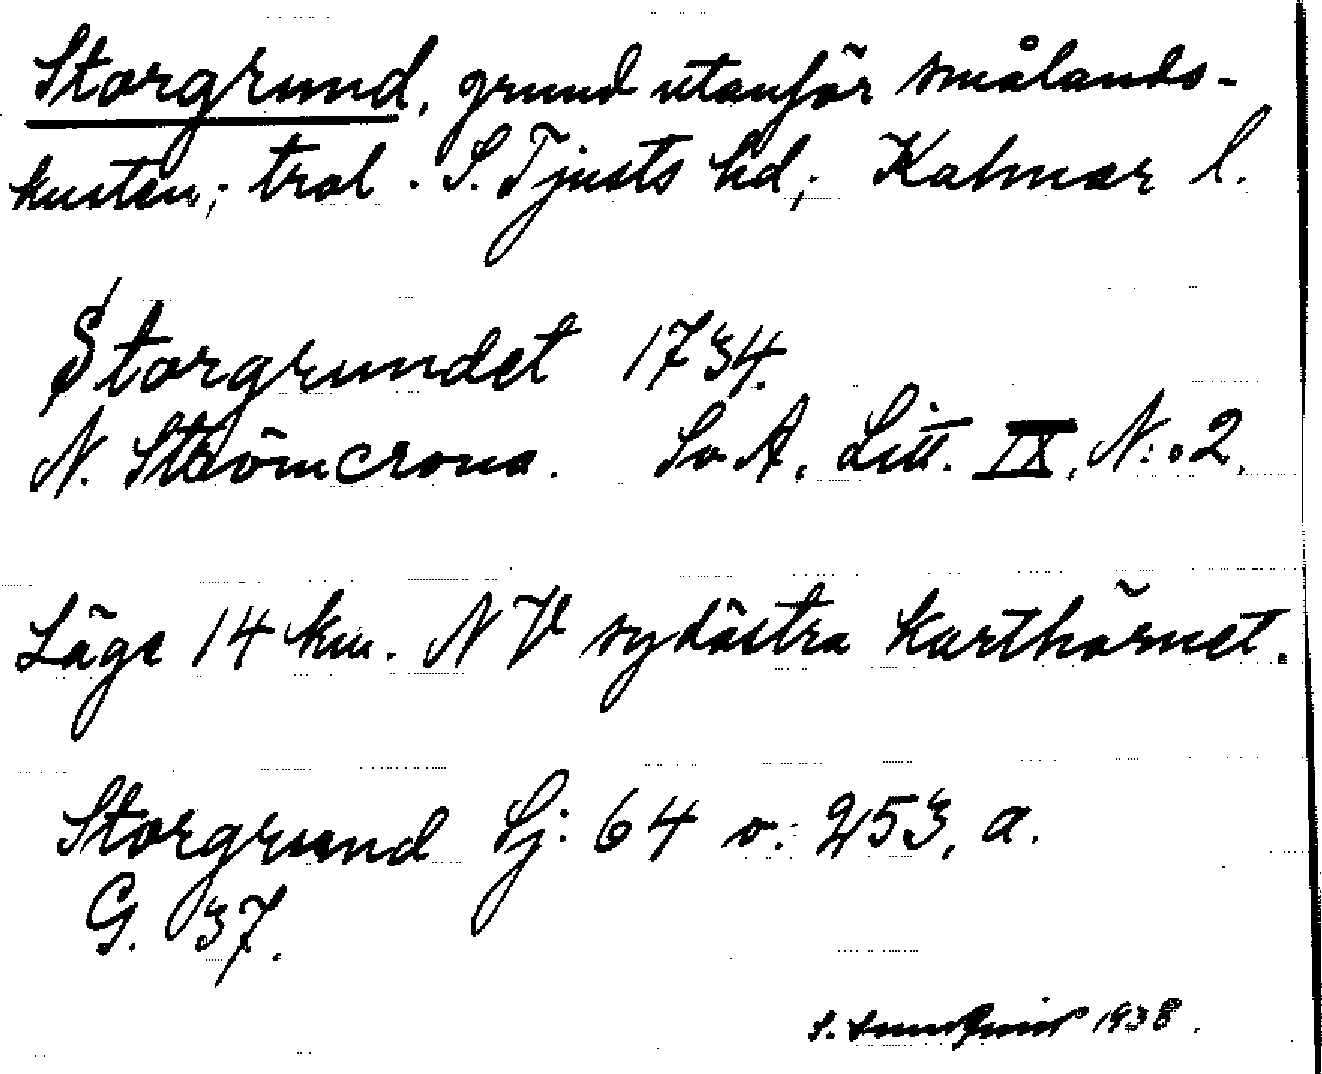 Storgrund, grund utanför smålands-
kusten; trol. S. Tjusts hd; Kalmar l.
Storgrundet 1734.
N. Strömcrona. Sv A, Litt. IX, N:o 2.
Läge 14 km. NV sydöstra karthörnet.
Storgrund Sj: 64 o. 253, a.
G. 37.
S. 1938.